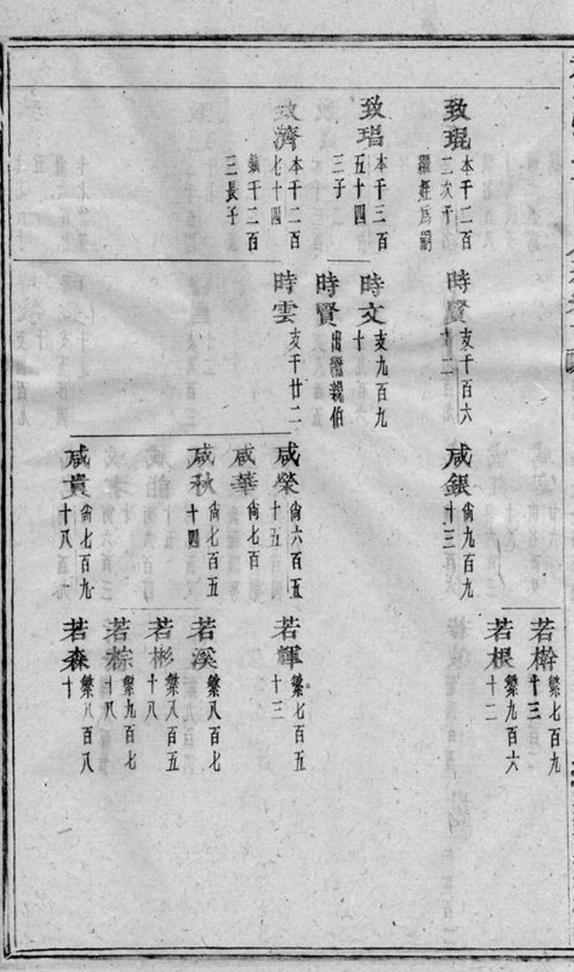 致琨 本千二百
三次子
繼姪爲嗣
致琩 本千三百
五十四
三子
致濟 本千二百
七十四
千二百
三長子
時賢 亥千百六
廿二
時文 亥九百九
十
時賢 出繼親伯
時雲 亥千廿二
咸銀 尙九百九
十三
咸榮 尙六百五
十五
咸華 尙七百
咸秋 尙七百五
十四
咸貴 尙七百九
十八
若榦 繁七百九
十三
若根 繁九百六
十二
若輝 繁七百五
十三
若溪 繁八百七
十
若彬 繁八百五
十八
若棕 繁九百七
十八
若森 繁八百八
十